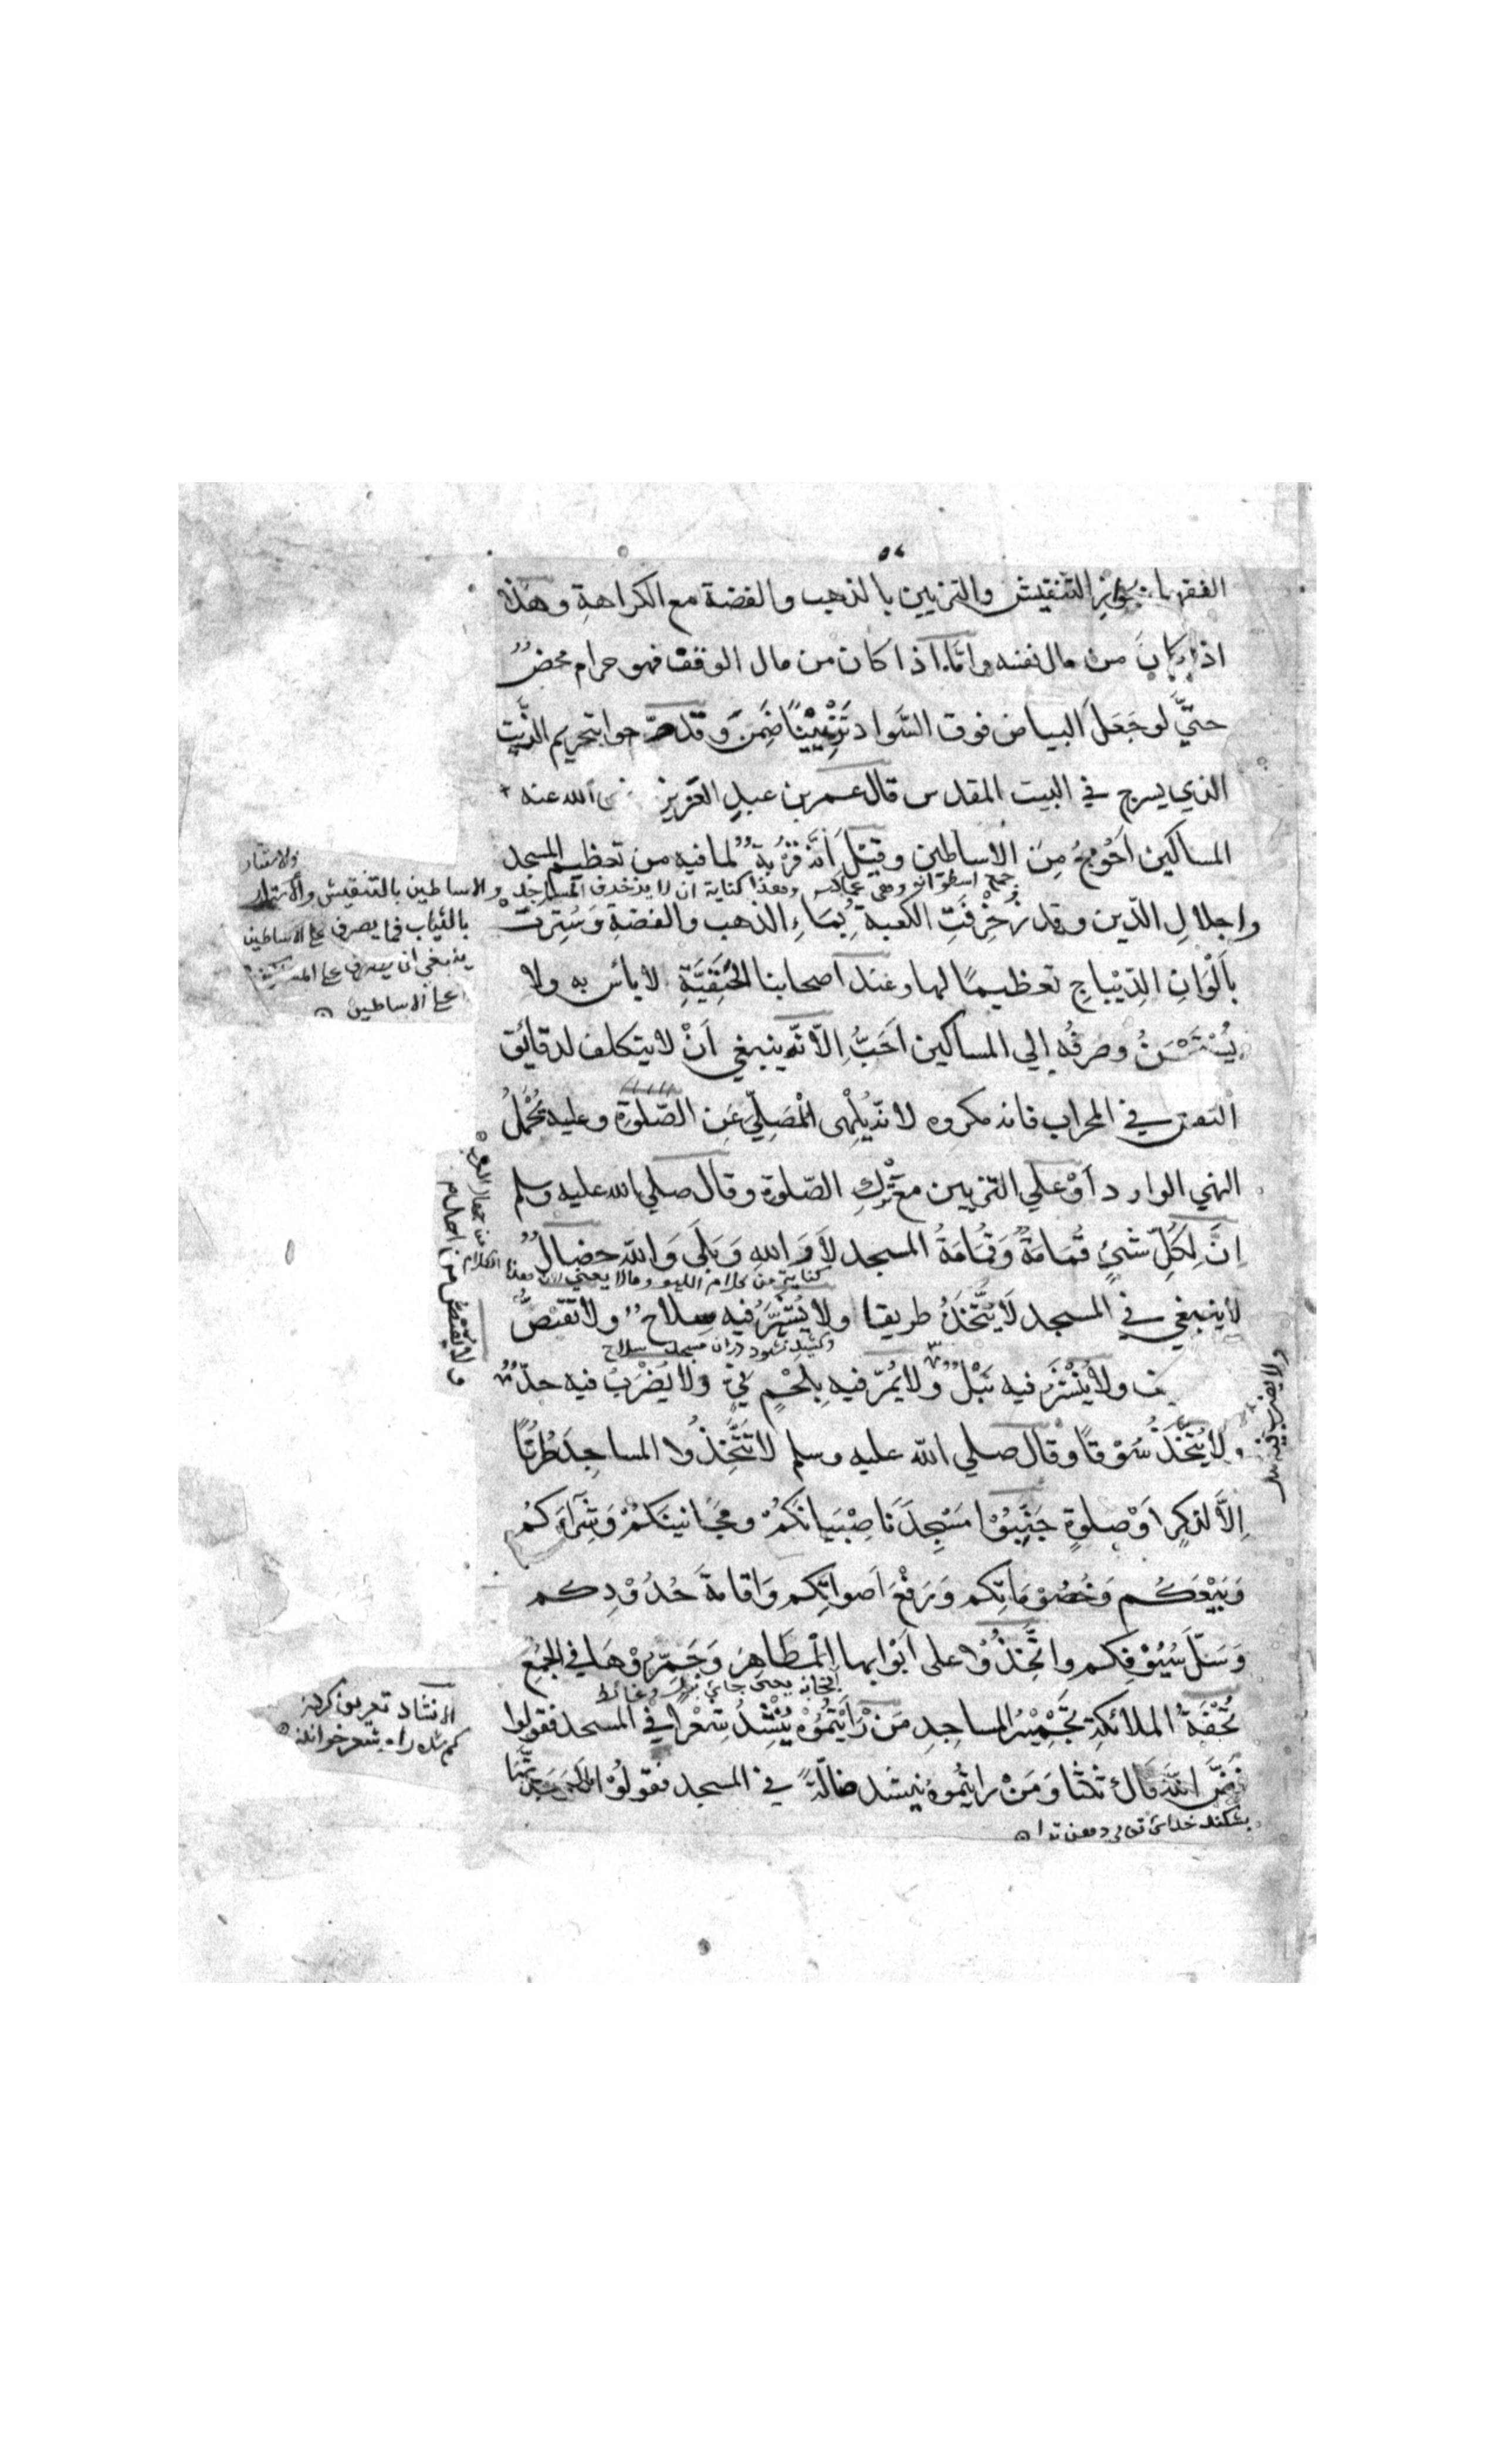 الفقهاء بجوانز التنقيش والتزيين بالذهب والفضة مع الكراهةِ وهذا
اذا كان من مال نفسه وامّا اذا كان من مال الوقف فهو حرام محضٌ
حتيَّ لو جَعَلَ البياض فوق السَّواد تَزْيِيْنًا ضَمِنَ وَقد صرّحوا بتحريم الزَّيت
الذي يسرج في البيت المقدس قال عمر بن عبدِ العَزيز رضي الله عنه
المساكين اَحْوَجُ مِنَ الاساطين وقِيْلَ اَنَّه قُرْبةٌ لما فيه من تعظيم المسجد
جمع اسطوانه
وهذا كناية ان لا يزخرف المساجد والاساطين بالتنقيش والاستار
بالثياب فما يصرف علي الاساطين
ينبغي ان يصرف علي
علي الاساطين
واجلالِ الدّين وقد زُخْرِفَتِ الكعبةُ بِمَاءِ الذهب والفضةِ وَسُتِرتْ
بِاَلْوَانِ الدِّيْبَاجِ تعظيمًا لها وعند اصحابنا الحَنَفِيَّةِ لا بأس به ولا
يُسْتَحْسَنُ وصرفُه الي المساكين اَحَبُّ اِلّا انَّه ينبغي اَنْ لا يتكلف لدقائق
النقش في المحراب فانه مكروه لانّه يُلْهِي الْمُصَلِّيَ عَنِ الصّلوٰةِ وعليه يُحْمَلُ
النهي الوارد اَوْ علي التزيين مع تَرْكِ الصّلوة وقال صلي الله عليه وسلم
اِنَّ لِكُلِّ شَيْءٍ قُمَامَةً وَقُمَامَةُ المسجد لاَ وَاللهِ وَبَلَى وَاللهِ خصالٌ
لا ينبغي في المسجد لا يُتَّخَذُ طريقا ولا يُشْهَرُ فيه سِلاحٌ ولا تقتصُّ
وكشيده نشود دران مسجد سلاح
ولا يُنْشَرَ فيه نَبْلٌ ولا يُمَرّ فيه بِلحْمٍ نِيٍّ ولا يُضْرَبُ فيه حدٌّ
ولا يُتَّخَذُ سُوْقًا وقال صلي الله عليه وسلم لا تَتَّخِذُوا المساجِدَ طُرُقًا
اِلَّا لذكرٍ اَوْ صلوةٍ جَنِّبُوْا مَسْجِدَنَا صِبْيَانَكُمْ ومَجَانينَكُمْ وَشِرَآءَكُمْ
وَبَيْعَكُم وَخُصُوْمَاتِكم وَرَفْعَ اَصواتِكم وَاقامةَ حُدُوْدِكم
وَسَلَّ سُيُوْفِكم واتَّخِذُوْا على اَبْوَابها الْمَطَاهِرَ وَجَمِّرُوْهَا في الجُمَعِ
تُحْفَةُ الملائكةِ تَجْمِيْرُ المساجِدِ مَنْ رَأيْتُمُوْهُ يُنْشِدُ شِعْرًا في المسجد فقولوا
الانشاد تعريف كردن
فَضَّ اللهُ فَاكَ ثلثا وَمَنْ رايتُموهُ ينشد ضالّةً في المسجد فقولُوْا
بشكند خداي تعالي دهن ترا